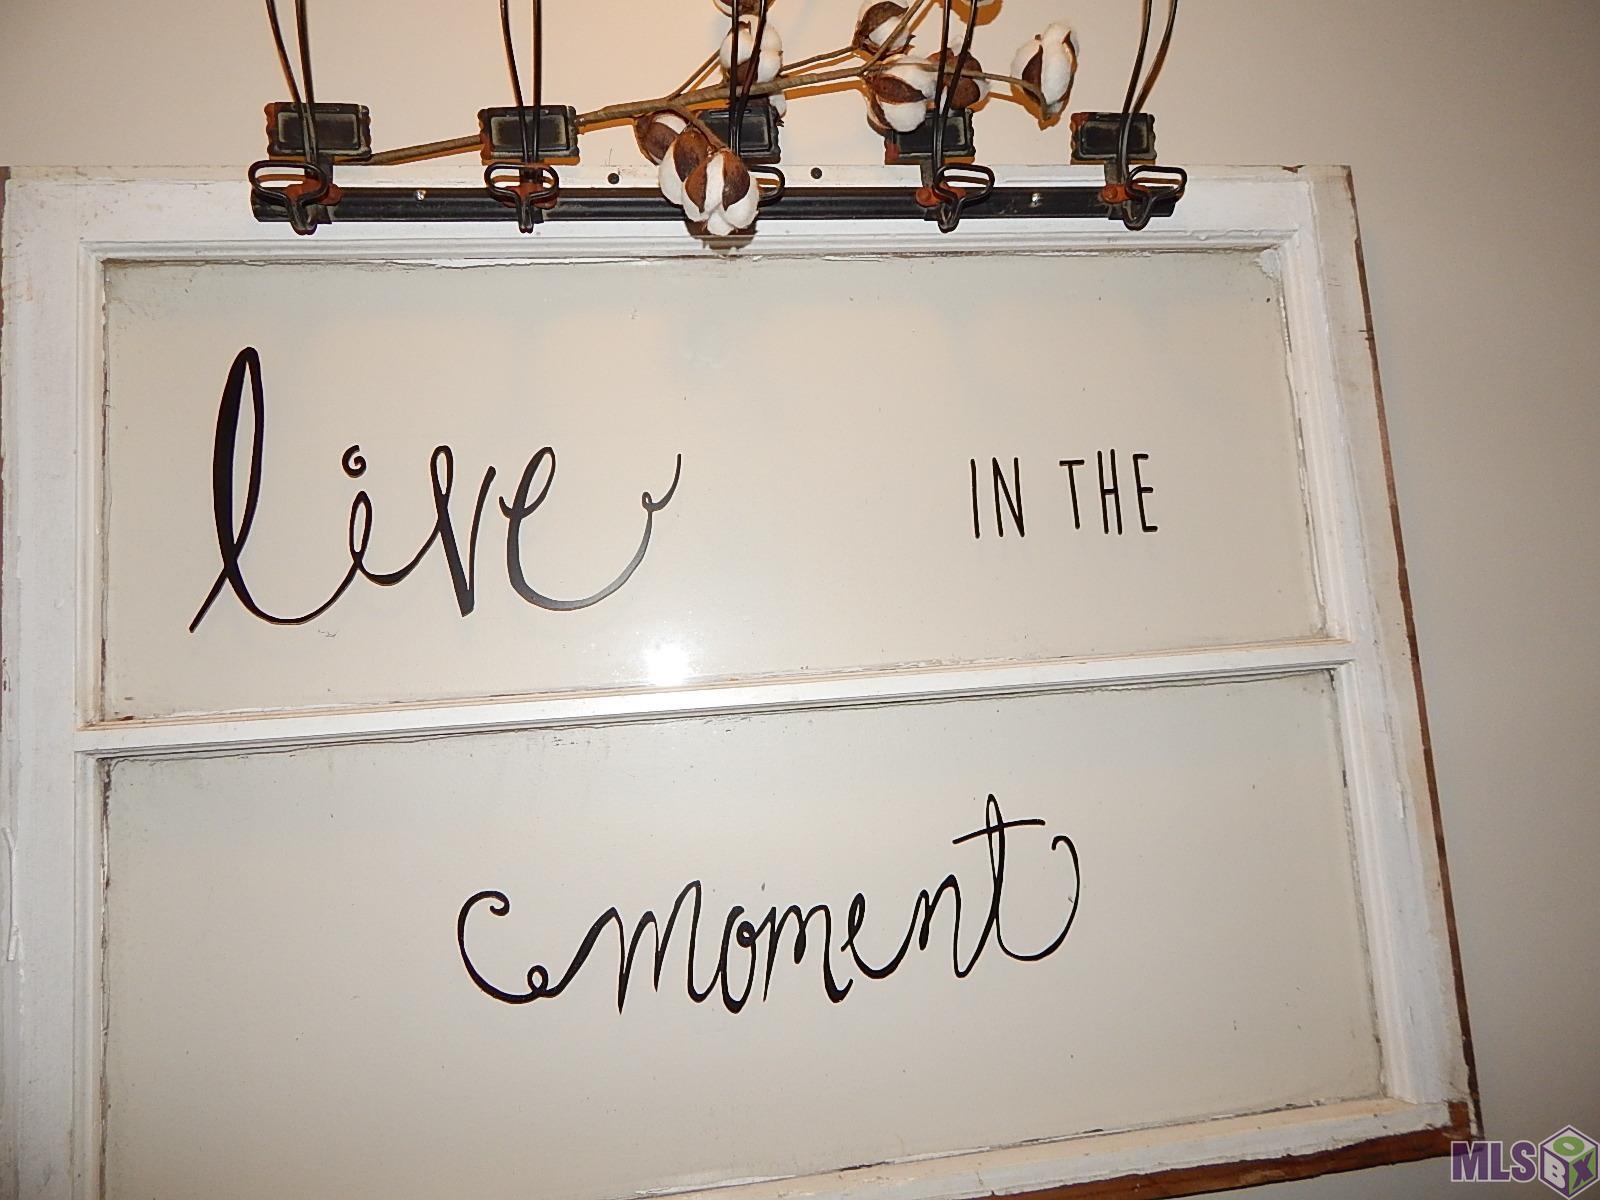 live IN THE
moment
MLSBOX